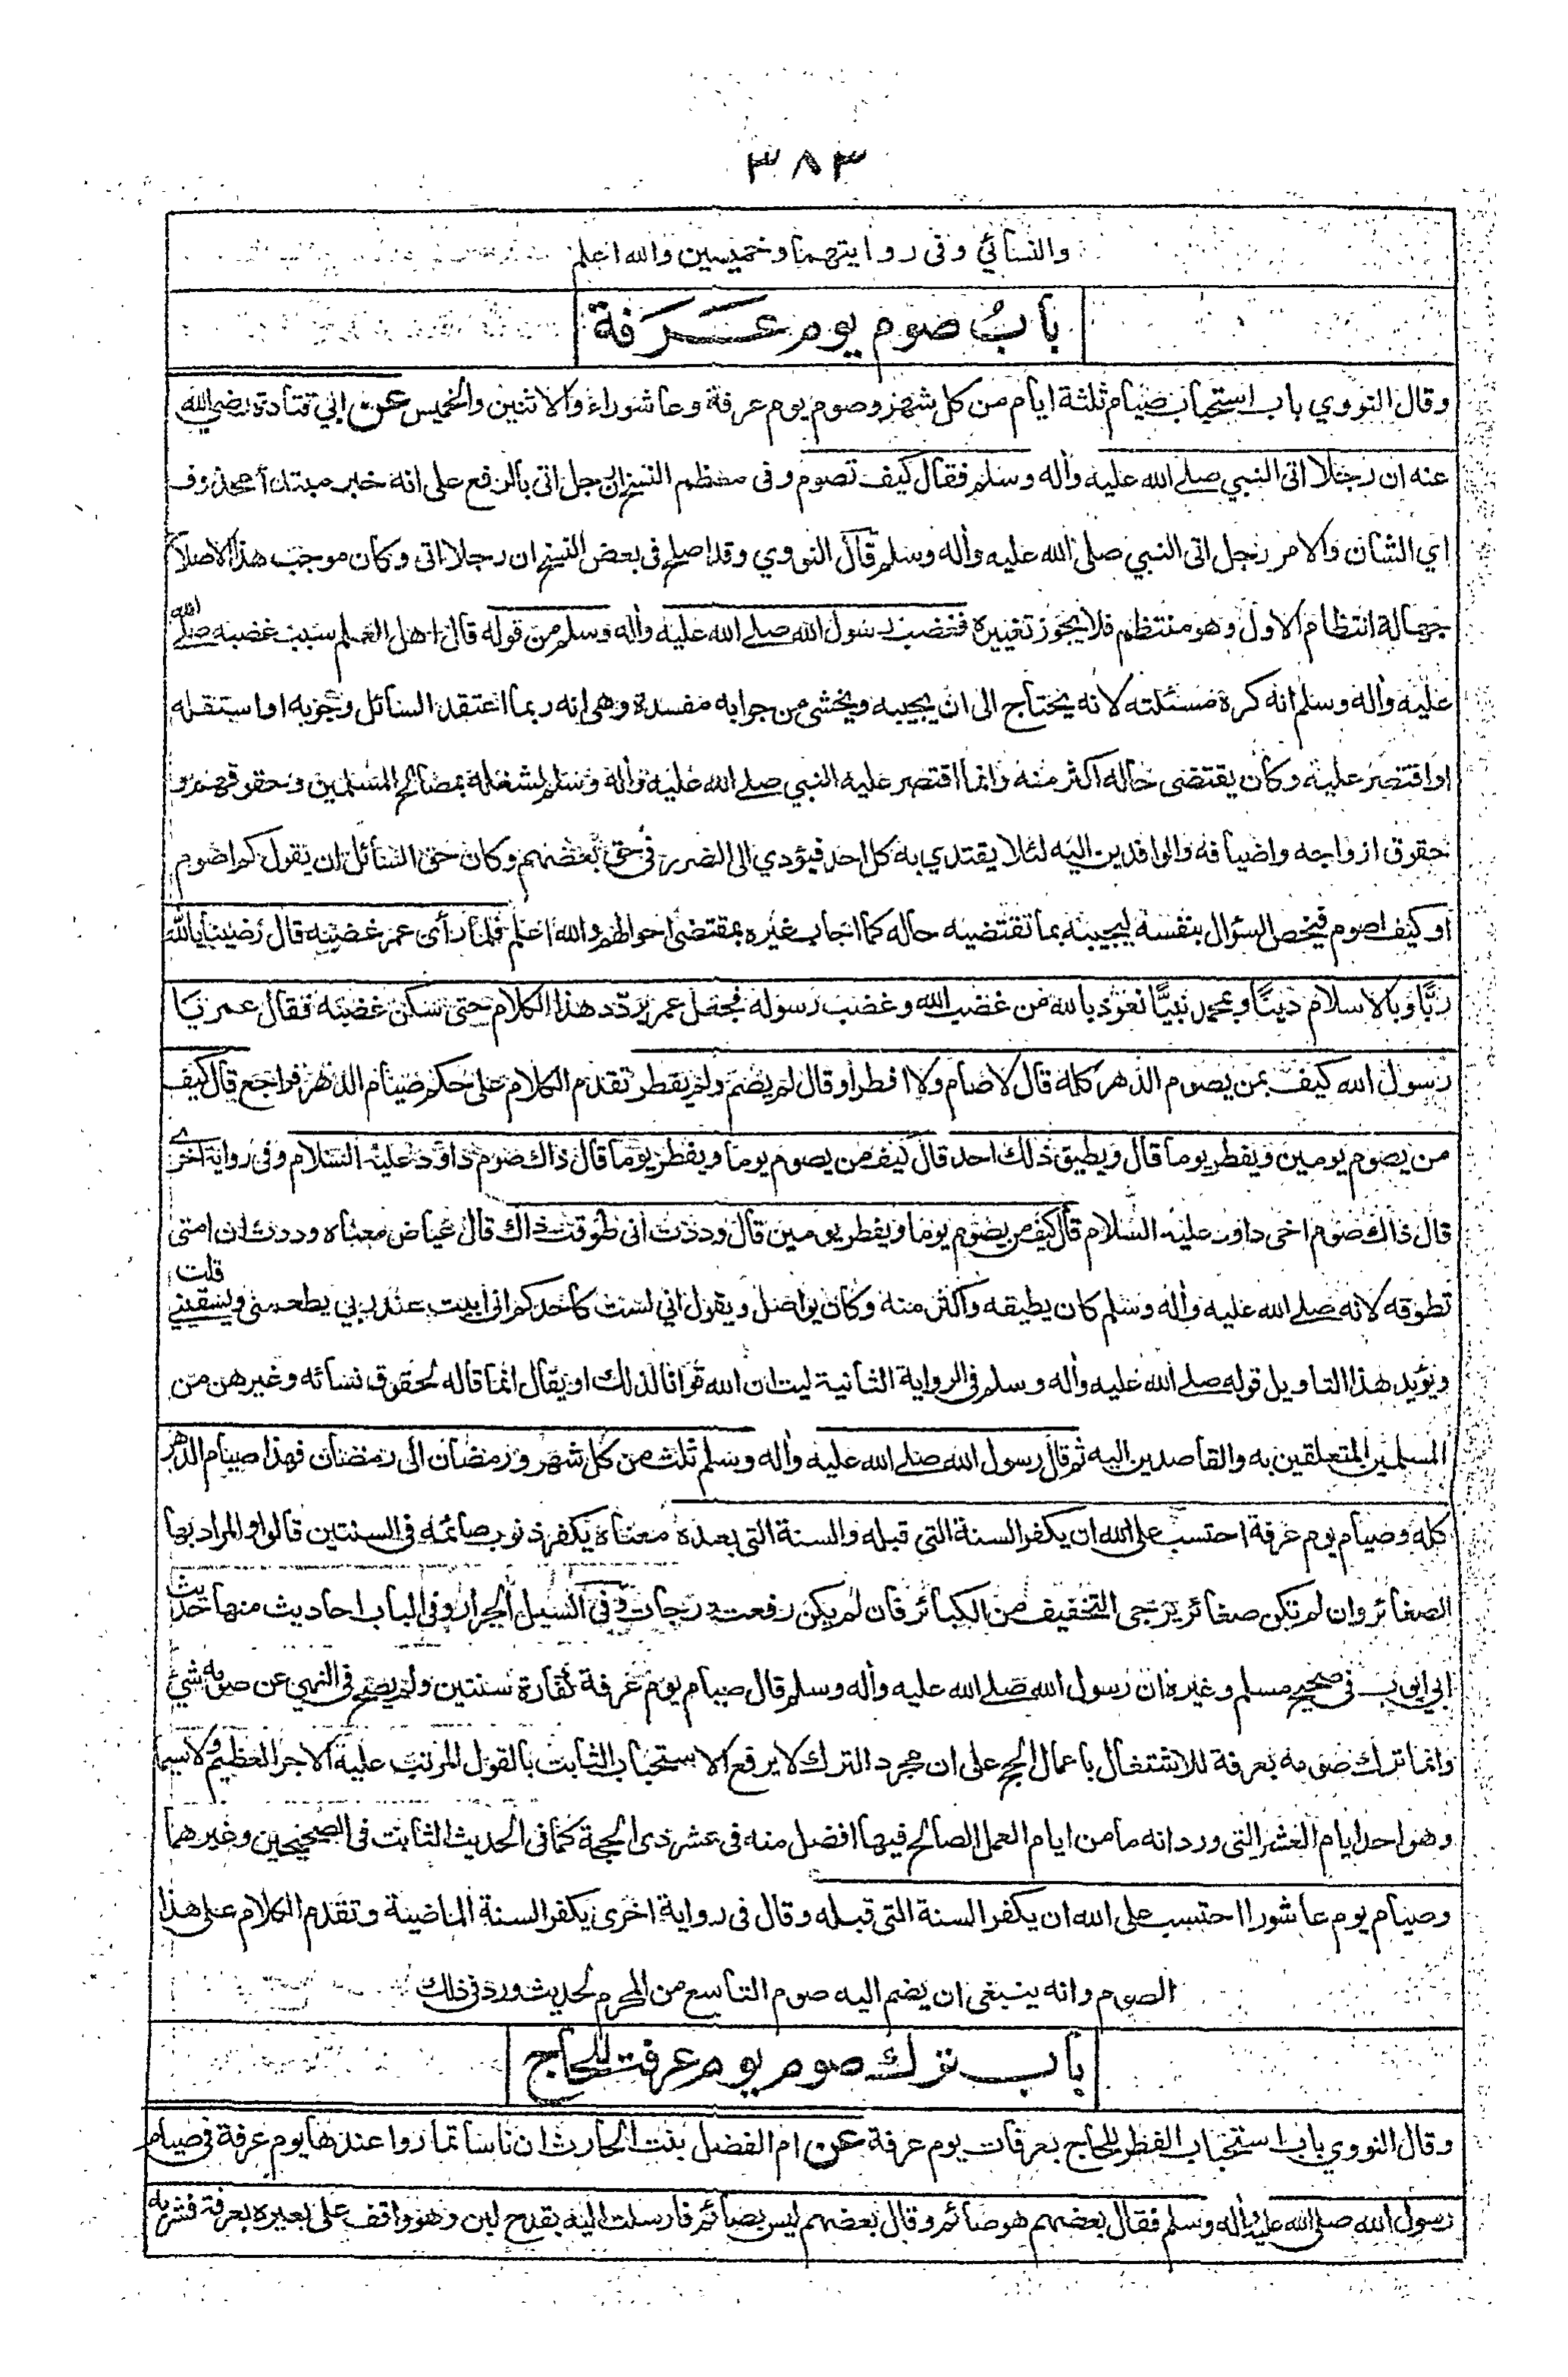 ٣٨٣
والنسائي وفى روايتهما وخميسين والله اعلم
باب صوم يوم عرفة
وقال النووي باب استحباب صيام ثلثة ايام من كل شهر وصوم يوم عرفة وعاشوراء والاثنين والخميس عن ابي قتادة رضي الله
عنه ان رجلا اتى النبي صلے الله عليه وأله وسلم فقال كيف تصوم وفى معظم النسخ ان رجل اتى بالرفع على انه خبر مبتدأ محذوف
اي الشان والامر رجل اتى النبي صلى الله عليه وأله وسلم قال النووي وقد اصلح فى بعض النسخ ان رجلا اتى وكان موجب هذا الاصلاح
جهالة انتظام الاول وهو منتظم فلا يجوز تغييره فغضب رسول الله صلے الله عليه وأله وسلم من قوله قال اهل العلم سبب غضبه صلے الله
عليه وأله وسلم انه كره مسئلته لانه يحتاج الى ان يجيبه ويخشى من جوابه مفسدة وهى انه ربما اعتقد السائل وجوبه او استقله
او اقتصر عليه وكان يقتضى حاله اكثر منه وانما اقتصر عليه النبي صلے الله عليه وأله وسلم لشغله بمصالح المسلمين وحقوقهم و
حقوق ازواجه واضيافه والوافدين اليه لئلا يقتدي به كل احد فيؤدي الى الضرر فى حق بعضهم وكان حق السائل ان يقول كم اصوم
او كيف اصوم فيخص السؤال بنفسه ليجيبه بما تقتضيه حاله كما اجاب غيره بمقتضى احوالهم والله اعلم فلما رأى عمر غضبه قال رضينا بالله
ربًّا وبالاسلام دينًا وبمحمد نبيًّا نعوذ بالله من غضب الله وغضب رسوله فجعل عمر يردّد هذا الكلام حتى سكن غضبه فقال عمر يا
رسول الله كيف بمن يصوم الدهر كله قال لا صام ولا افطر او قال لم يصم ولم يفطر تقدم الكلام على حكم صيام الدهر فراجع قال كيف
من يصوم يومين ويفطر يوما قال ويطيق ذلك احد قال كيف من يصوم يوما ويفطر يوما قال ذاك صوم داؤد عليه السلام وفى رواية اخرے
قال ذاك صوم اخى داود عليه السلام قال كيف من يصوم يوما ويفطر يومين قال وددت انى طوقت ذاك قال عياض معناه وددت ان امتى
تطوقه لانه صلے الله عليه وأله وسلم كان يطيقه واكثر منه وكان يواصل ويقول اني لست كاحدكم انى ابيت عند ربي يطعمنى ويسقينے قلت
ويؤيد هذا التاويل قوله صلے الله عليه وأله وسلم فى الرواية الثانية ليت ان الله قوانا لذلك او يقال انما قاله لحقوق نسائه وغيرهن من
المسلمين المتعلقين به والقاصدين اليه ثم قال رسول الله صلے الله عليه وأله وسلم ثلث من كل شهر ورمضان الى رمضان فهذا صيام الدهر
كله وصيام يوم عرفة احتسب على الله ان يكفر السنة التى قبله والسنة التى بعده معناه يكفر ذنوب صائمه فى السنتين قالوا والمراد بها
الصغائر وان لم تكن صغائر يرجى التخفيف من الكبائر فان لم يكن رفعت درجات وفى السيل الجرار وفى الباب احاديث منها حديث
ابي ايوب فى صحيح مسلم وغيره ان رسول الله صلے الله عليه وأله وسلم قال صيام يوم عرفة كفارة سنتين ولم يصح فى النهى عن صومه شيئ
وانما ترك صومه بعرفة للاشتغال باعمال الحج على ان مجرد الترك لا يرفع الاستحباب الثابت بالقول المرتب عليه الاجر العظيم ولاسيما
وهو احد ايام العشر التى ورد انه ما من ايام العمل الصالح فيها افضل منه فى عشر ذى الحجة كما فى الحديث الثابت فى الصحيحين وغيرهما
وصيام يوم عاشورا احتسب على الله ان يكفر السنة التى قبله وقال فى رواية اخرى يكفر السنة الماضية وتقدم الكلام على هذا
الصوم وانه ينبغى ان يضم اليه صوم التاسع من المحرم لحديث ورد فى ذلك
باب ترك صوم يوم عرفة للحاج
وقال النووي باب استحباب الفطر للحاج بعرفات يوم عرفة عن ام الفضل بنت الحارث ان ناسا تماروا عندها يوم عرفة فى صيام
رسول الله صلے الله عليه وأله وسلم فقال بعضهم هو صائم وقال بعضهم ليس بصائم فارسلت اليه بقدح لبن وهو واقف على بعيره بعرفة فشربه